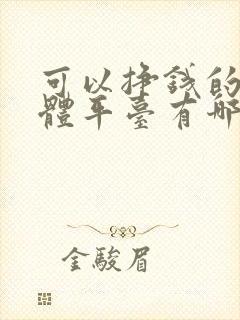 可以掙錢的
體平臺有哪
金駿眉